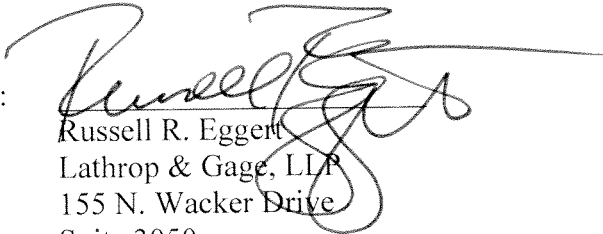 :
Russell R. Eggert
Lathrop & Gage, LLP
155 N. Wacker Drive
Suite 3050